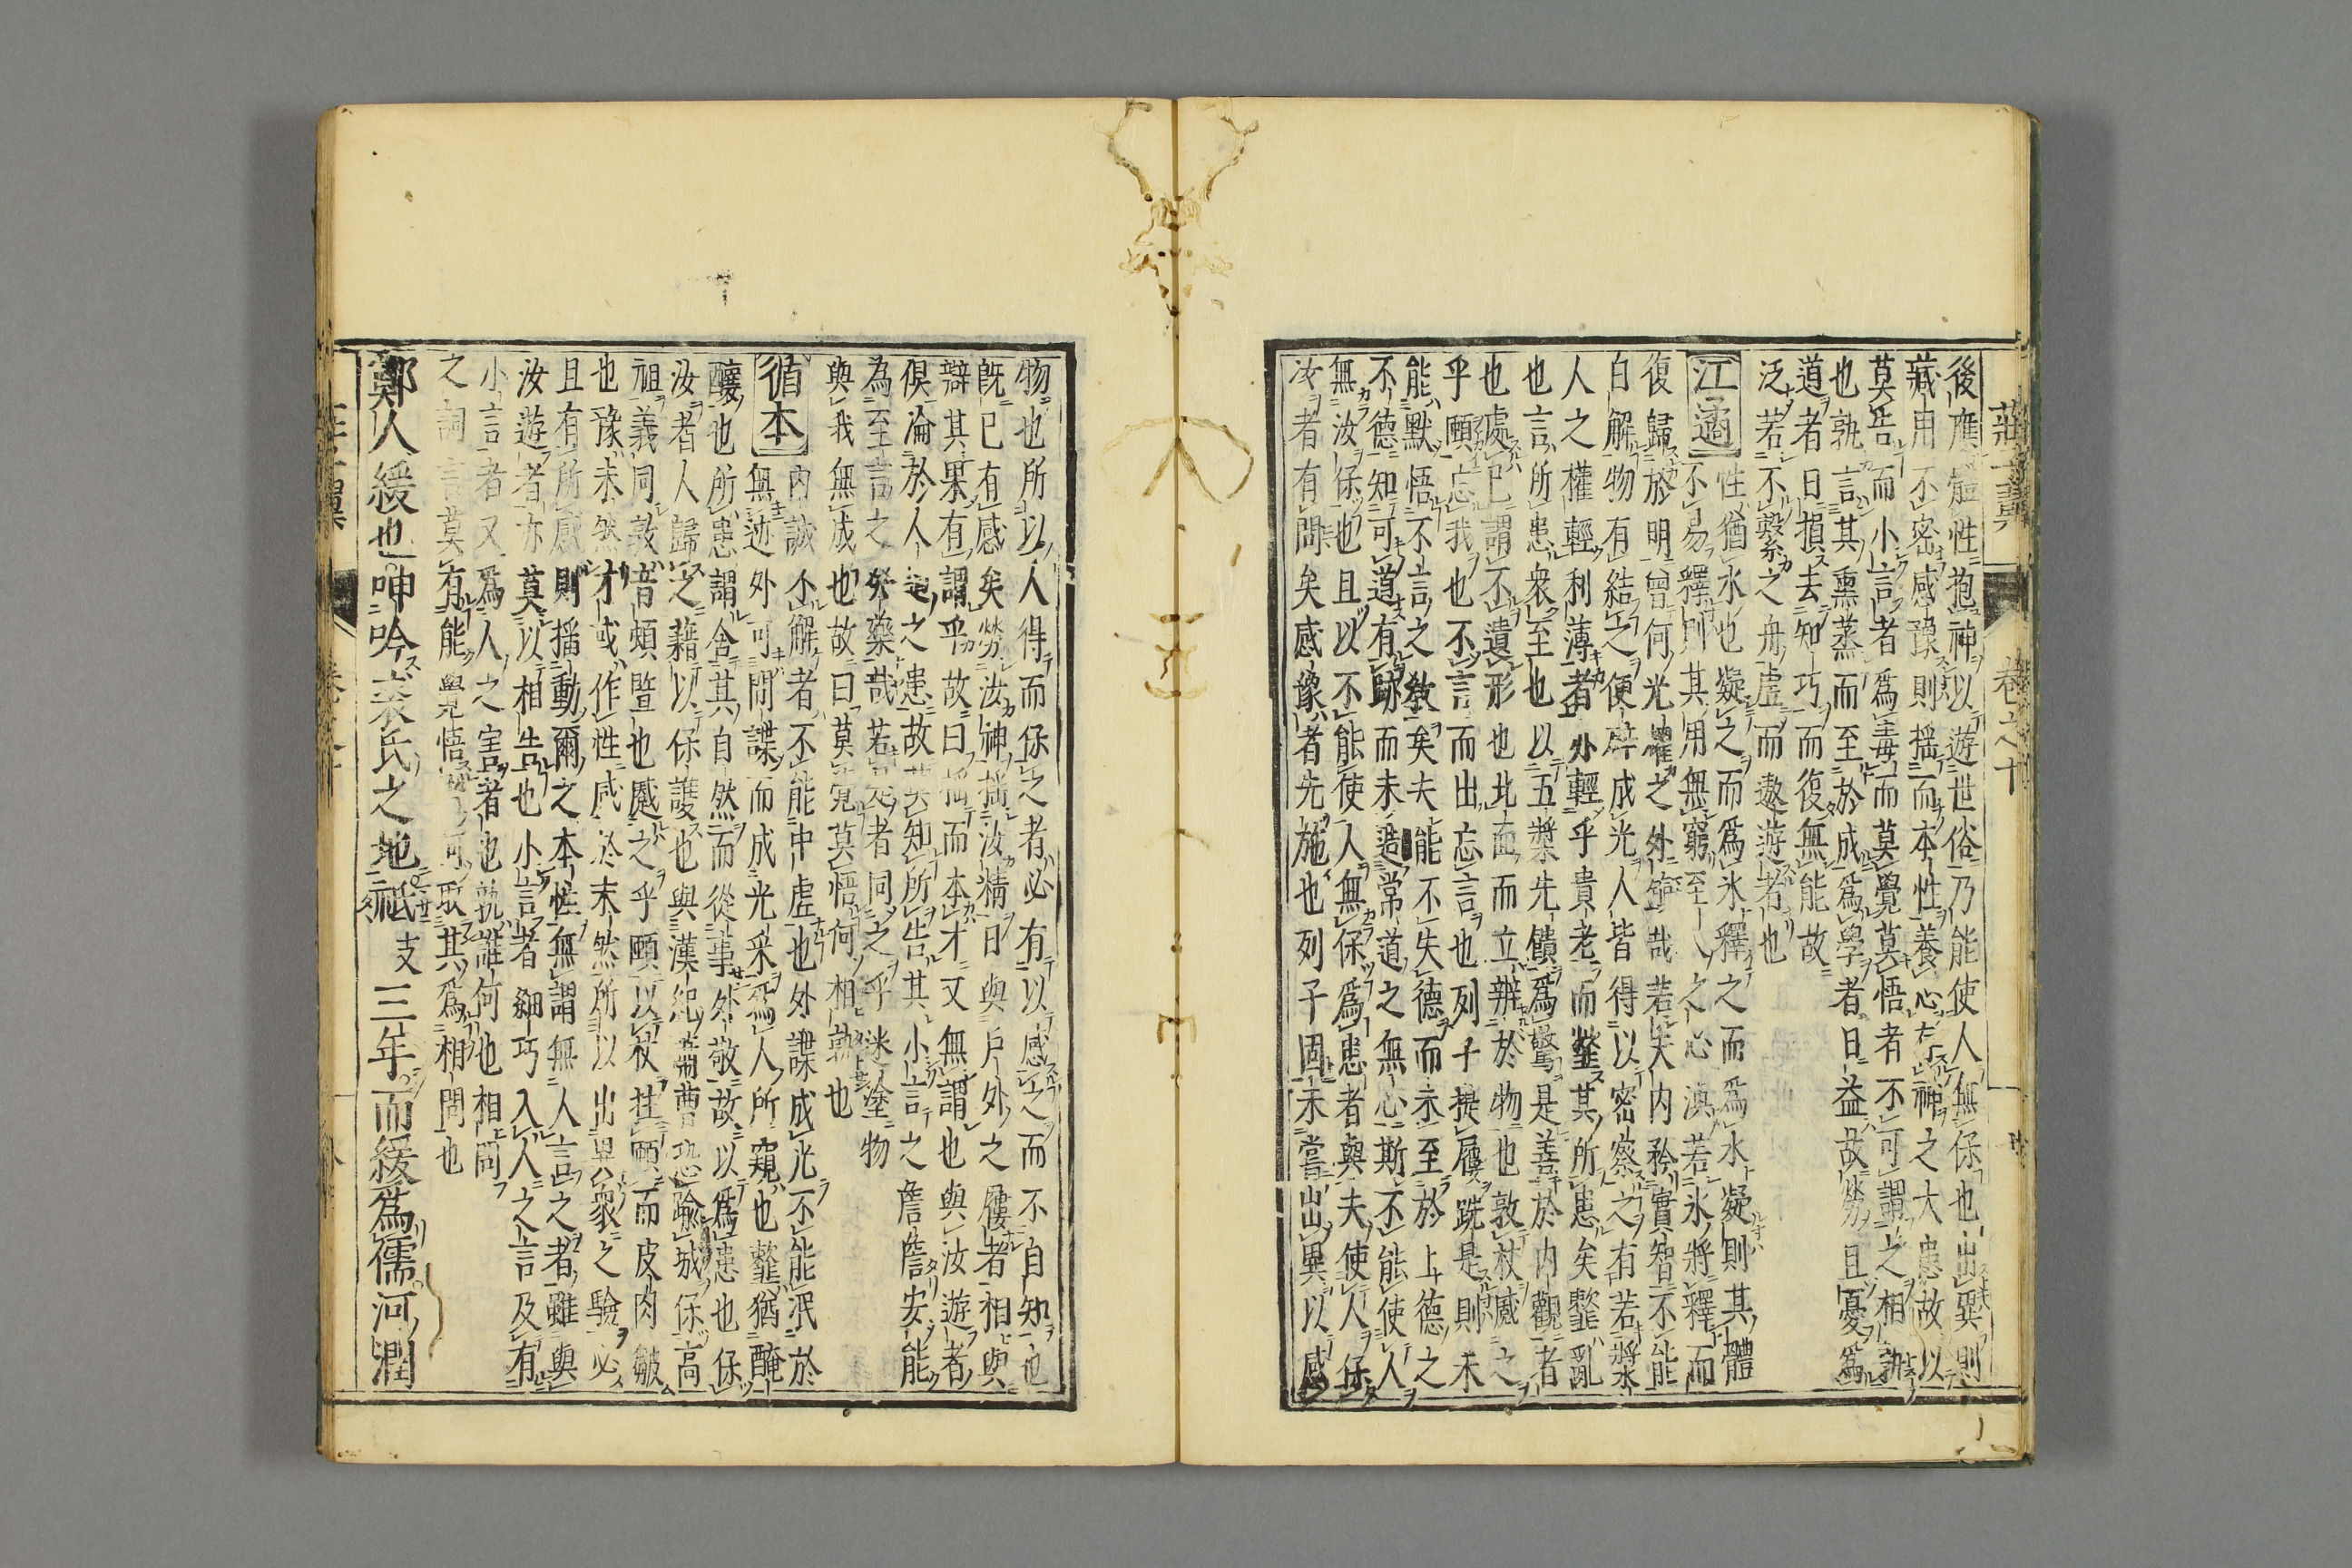 莊子翼 卷之十
後應體性抱神以遊世俗乃能使人無保也出異則
藏用不密感豫則搖而本性養心存神之大患故以
莫告而小言者為毒而莫覺莫悟者不可謂之相孰
也孰言其熏蒸而至於成為學者日益故勞且憂為
道者日損去知巧而復無能故
泛若不繫之舟虛而遨遊者也
江遹
性猶水也凝之而為氷釋之而為水凝則其體
不易釋則其用無窮至人之心渙若氷將釋而
復歸於明曾何光耀之外鎮哉若夫內矜實智不能
自解物有結之便辟成光人皆得以密察之有若將氷
人之權輕利薄者外輕乎貴老而韲其所患矣韲亂
也言所患眾至也以五漿先饋為驚是善於內觀者
也處已謂不遺形也北面而立辨於物也敦杖蹙之
乎頤忘我也不言而出忘言也列子提屨跣是則未
能默悟不言之教矣夫能不失德而未至於上德之
不德知可道有跡而未造常道之無心斯不能使人
無汝保也且以不能使人無保為患者與夫使人保
汝者有間矣感豫者先施也列子固未嘗出異以感
物也所以人得而保之者必有以感之而不自知也
既已有感矣勞汝神搖汝精日與戶外之屨者相與
辯其果有謂乎故曰搖而本才又無謂也與汝遊者
俱淪於人道之患故其知所告其小言之詹詹安能
為至言之發藥哉若是者同之乎迷塗物
與我無成也故曰莫覺莫悟何相孰也
循本
內誠不解者不能中虛也外諜成光不能泯於
無迹外可間諜而成光采為人所窺也韲猶醃
釀也所患謂舍其自然而從事外敬故以為患也保
汝者人歸之藉以保護也與漢紀蕭曹恐踰城保高
祖義同敦音頓豎也蹙之乎頤以杖拄頤而皮肉皺
也豫未然才或作性感於未然所以出異衆之驗必
且有所感則搖動爾之本性無謂無人言之者雖與
汝遊者亦莫以相告也小言者細巧入人之言及有
小言者又為人之害者也孰誰何也相問
之詞言莫有能覺悟無可取其為相問也
鄭人緩也呻吟裘氏之地祇支三年而緩為儒河潤